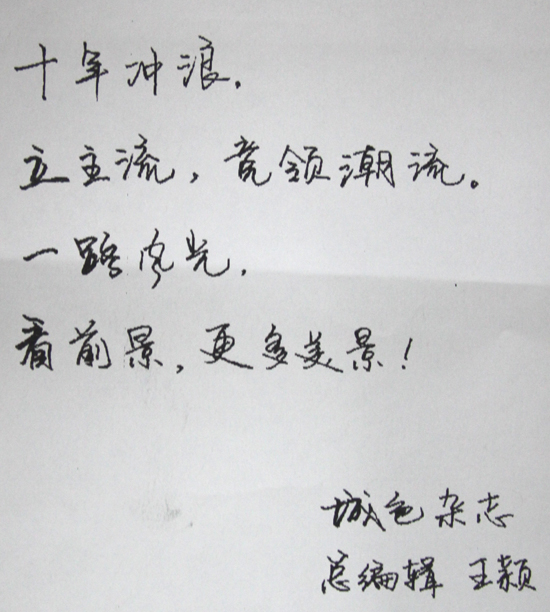 十年冲浪，
立主流，竞领潮流。
一路风光，
看前景，更多美景！
城色杂志
总编辑 王颖